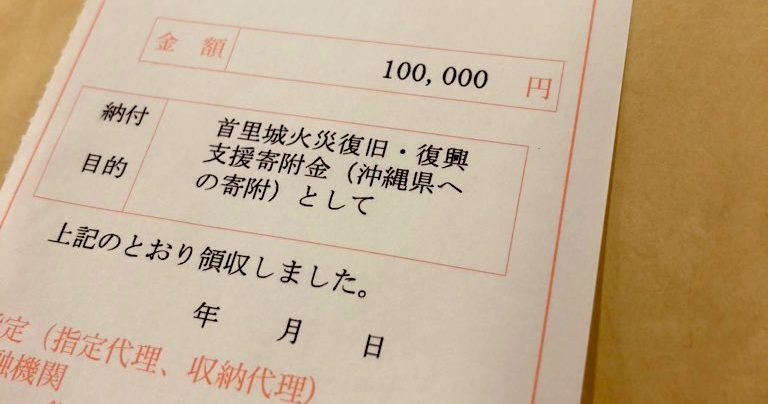 金額 100,000 円
納付目的
首里城火災復旧・復興
支援寄附金（沖縄県へ
の寄附）として
上記のとおり領収しました。
年 月 日
定（指定代理、収納代理）
融機関